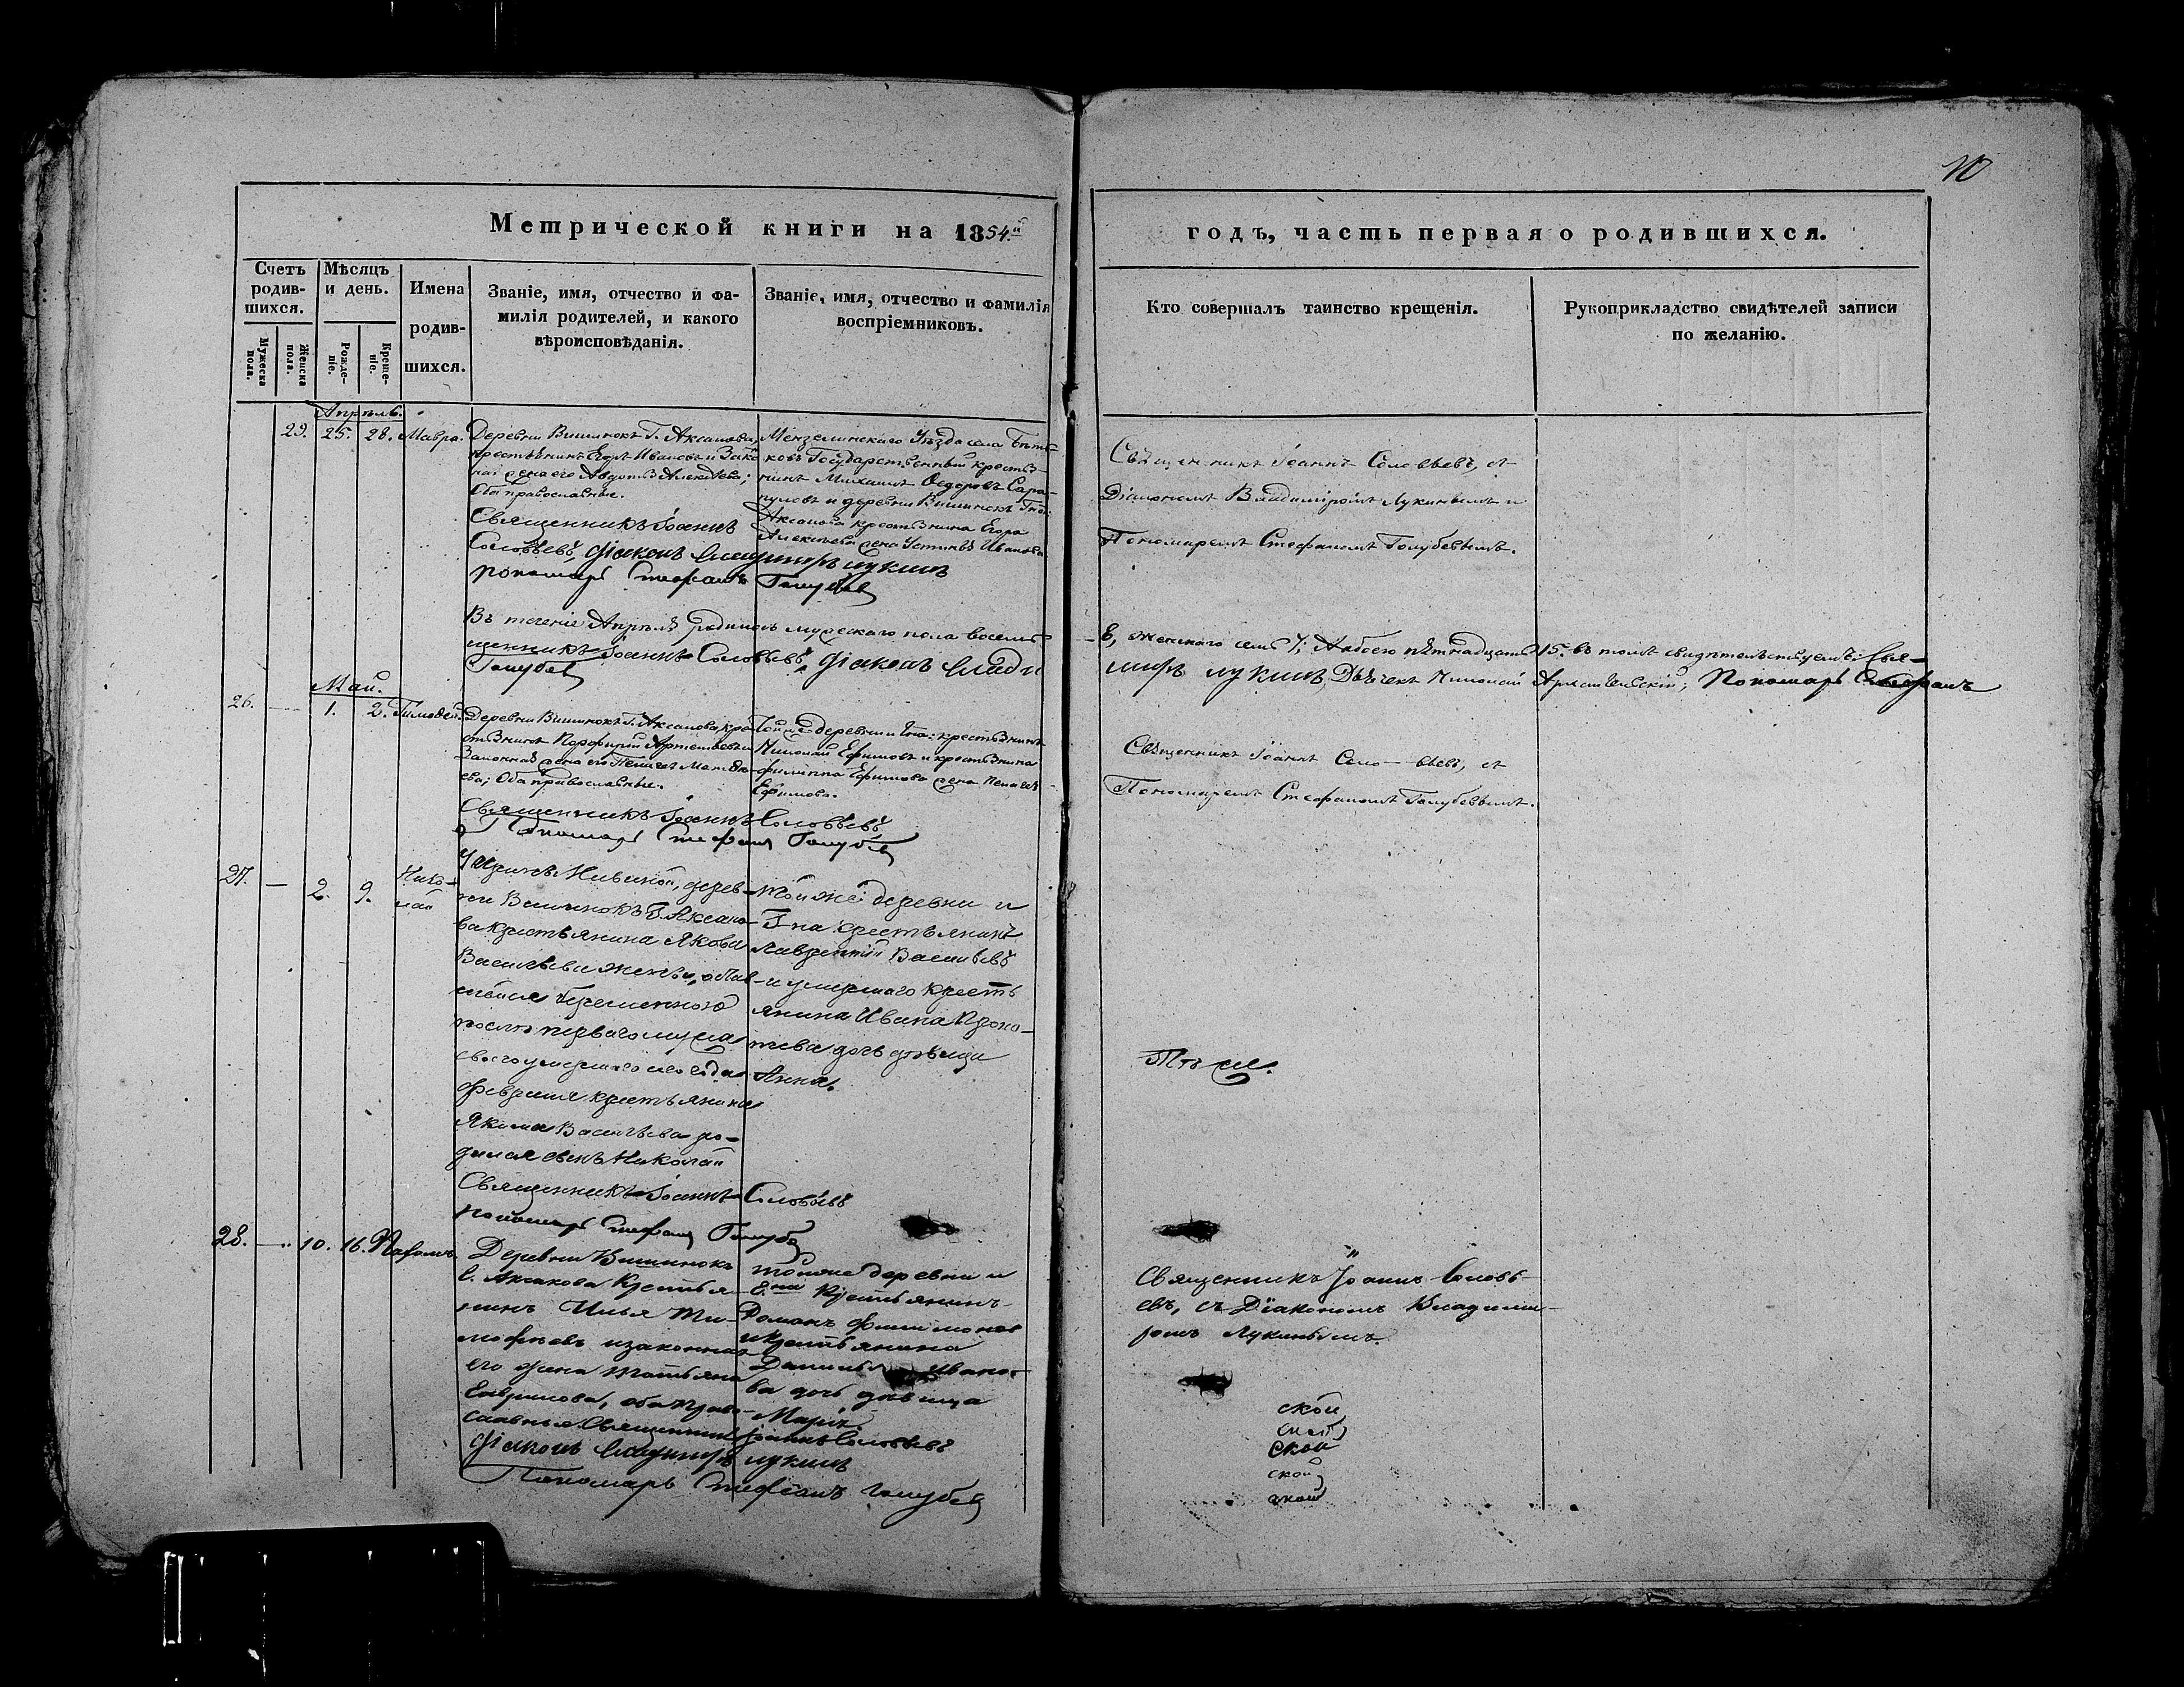 10
Метрической книги на 1854й
годъ, часть первая о родившихся.
Счетъ родив-
шихся.
Мужеска пола.
Женска пола.
Мѣсяцъ
и день.
Рожде-
ніе.
Креще-
ніе.
Имена
родив-
шихся.
Званіе, имя, отчество и фа-
милія родителей, и какого
вѣроисповѣданія.
Званіе, имя, отчество и фамилія
воспріемниковъ.
Кто совершалъ таинство крещенія.
Рукоприкладство свидѣтелей записи
по желанію.
Апрѣль.
29. 25. 28. Мавра.
Деревни Вишнокъ Г. Аксакова,
крестьянинъ Егоръ Ивановъ и Зако-
ная жена его Авдотья Алексѣева;
Оба православные.
Священникъ Іоаннъ
Соловьевъ, Діаконъ Владимиръ Лукинъ
Пономарь Стефанъ Голубев
Мензелинскаго Уѣзда села
ковъ Государственный крестья-
нинъ Михаилъ Ѳедоровъ Сара-
пуловъ и деревни Вишнокъ Гна
Аксакова крестьянина Егора
Алексѣева жена Устинья Иванова
Священникъ Іоаннъ Соловьевъ, съ
Діакономъ Владиміромъ Лукинымъ и
Пономаремъ Стефаномъ Голубевымъ.
Въ теченіе Апрѣля родилось мужескаго пола восемь
8, женскаго семь 7; А обоего пятнадцать 15. въ томъ свидѣтельствуемъ: Свя-
щенникъ Іоаннъ Соловьевъ, Діаконъ Влади
миръ Лукинъ, Дьячекъ Николай Пономарь Стефанъ
Голубев
Май.
26. — 1. 2. Тимофей.
Деревни Вишнокъ Г. Аксакова, кре-
стьянинъ Порфирій Артемьевъ и
Законная жена его Пелагея Матвѣ-
ева; Оба православные.
Священникъ Іоаннъ Соловьевъ
Пономарь Стефанъ Голубев
Той же деревни и Гна: крестьянинъ
Николай Ефимовъ и крестьянина
Филиппа Ефимова жена Пелагея
Ефимова.
Священникъ Іоаннъ Соло—вьевъ, съ
Пономаремъ Стефаномъ Голубевымъ.
27. — 2. 9. Нико-
лай
У Ирины Ильиной, дерев-
ни Вишнокъ Г. Аксако-
ва крестьянина Якова
Васильева жены,
беременною
послѣ перваго мужа
своего умершаго сего года
февраля крестьянина
Якима Васильева ро-
дился сынъ Николай
Священникъ Іоаннъ Соловьевъ
Пономарь Стефанъ Голубев
Той же деревни и
Г-на крестьянинъ
Лаврентій Васильевъ
и умершаго кресть
янина Ивана Проко-
пьева дочь дѣвица
Анна.
Тѣ же.
28. — 10. 16. Пахомъ
Деревни Вишнокъ
Г. Аксакова Крестья-
нинъ Илья Ти-
мофѣевъ и законная
его жена Татьяна
Гаврилова, оба право-
славныя. Священникъ Іоаннъ Соловьевъ
Діаконъ Владимиръ Лукинъ
Пономарь Стефанъ Голубев
той же деревни и
Гна Крестьянинъ
Романъ Филимонов
и крестьянина
Данилы Ивано-
ва дочь дѣвица
Марія.
Священникъ Іоаннъ Соловь-
евъ, съ Діакономъ Владими-
ромъ Лукинымъ.
ской
ской
ской
ской